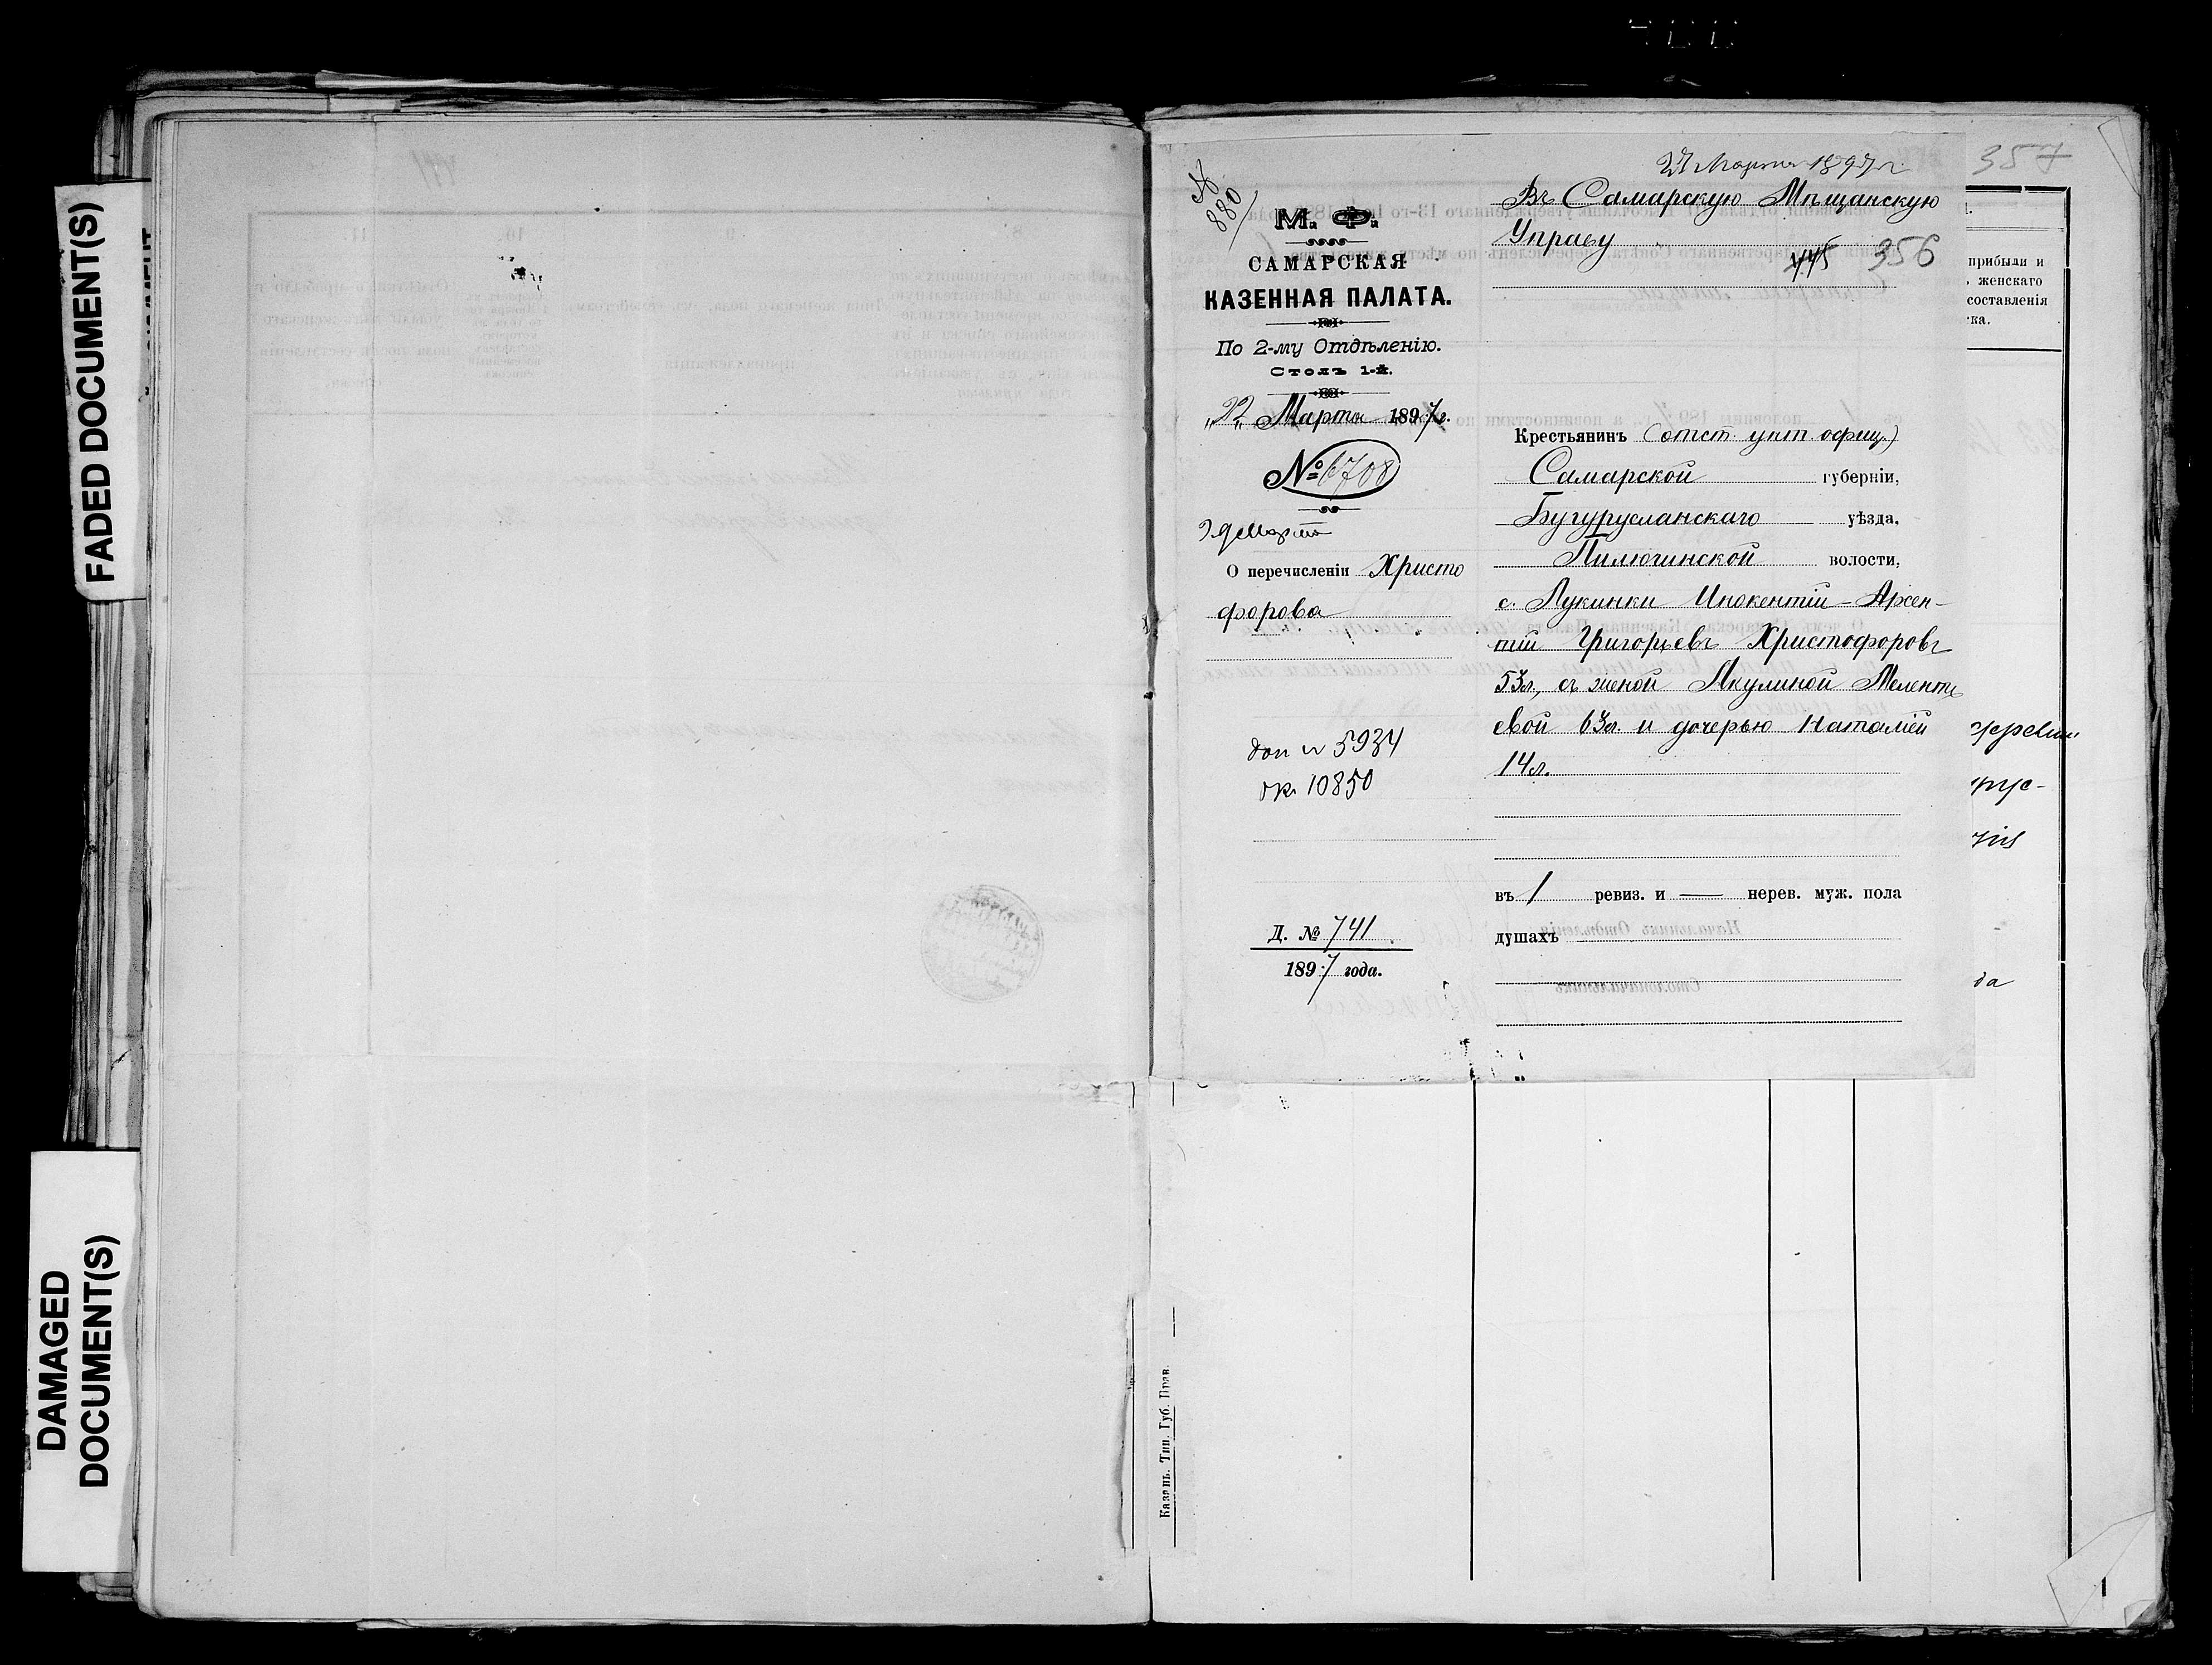 FADED DOCUMENT(S)
DAMAGED
DOCUMENT(S)
357
№
880
27 Марта 1897 г
М. Ф.
САМАРСКАЯ
КАЗЕННАЯ ПАЛАТА.
По 2-му Отдѣленію.
Столъ 1-й.
„22„ Марта 1897 г.
№ 6708
О перечисленіи Христо
форова
доп № 5934
ок. 10850
Д. № 741
1897 года.
Въ Самарскую Мѣщанскую
Управу
445 356
Крестьянинъ (отст. унт. офиц.)
Самарской губерніи,
Бугурусланскаго уѣзда,
Пилюгинской волости,
с. Лукинки Инокентій-Арсен-
тій Григорьевъ Христофоровъ
53 л., съ женой Якулиной Мелентъ
евой 63 л. и дочерью Наталіей
14 л.
въ 1 ревиз. и — нерев. муж. пола
душахъ
прибыли и
женскаго
составленія
ка.
рус-
да
Казань. Тип. Губ. Прав.